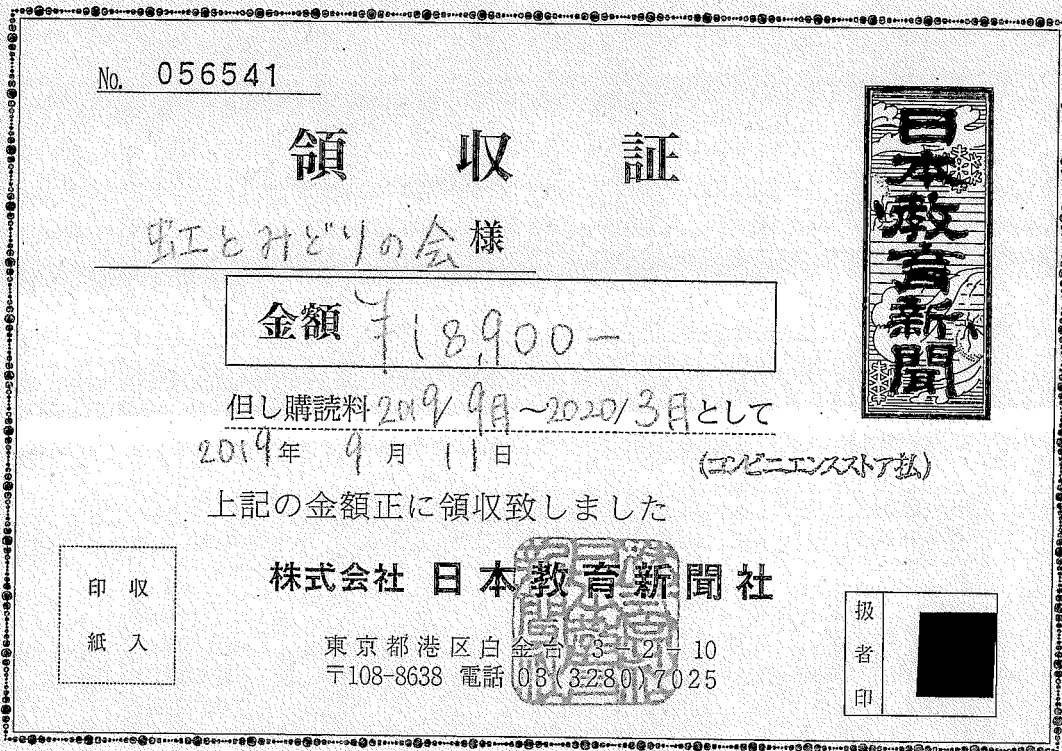 No. 056541
領収証
虹とみどりの会様
金額 ¥18,900-
但し購読料2019/9月～2020/3月として
2019年 9月 11日
(コンビニエンスストア払)
上記の金額正に領収致しました
株式会社 日本教育新聞社
東京都港区白金台 3-2-10
〒108-8638 電話 03(3280)7025
日本教育新聞
収入
印紙
扱者印